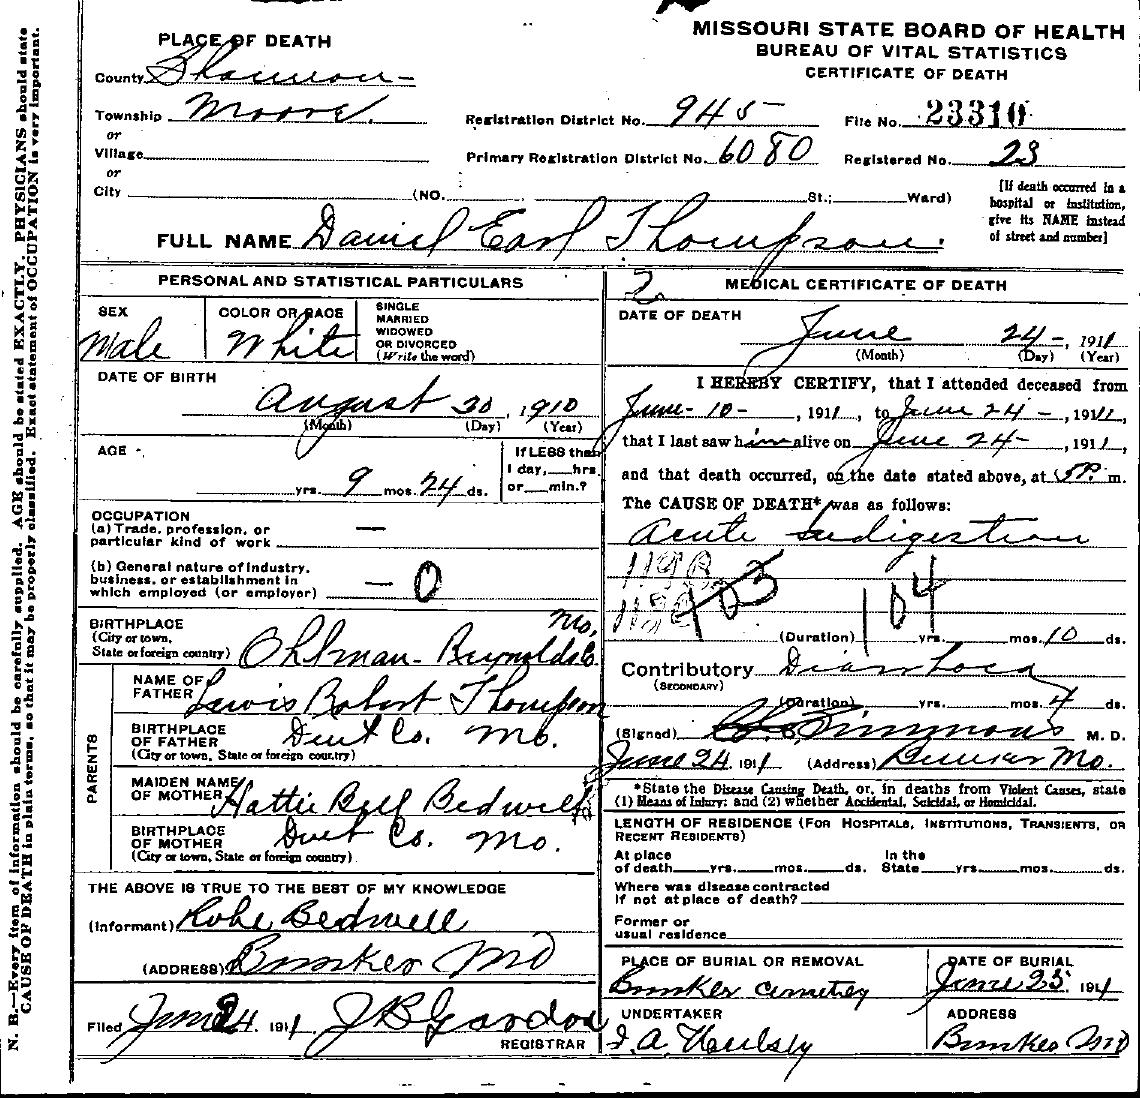 MISSOURI STATE BOARD OF HEALTH
BUREAU OF VITAL STATISTICS
CERTIFICATE OF DEATH
PLACE OF DEATH
County Shannon
Township Moore.
or
Village
or
City (NO. St.; Ward)
Registration District No. 945
File No. 23310
Primary Registration District No. 6080
Registered No. 23
[If death occurred in a
hospital or institution,
give its NAME instead
of street and number]
FULL NAME Daniel Earl Thompson.
PERSONAL AND STATISTICAL PARTICULARS
SEX
Male
COLOR OR RACE
White
SINGLE
MARRIED
WIDOWED
OR DIVORCED
(Write the word)
DATE OF BIRTH
August 30, 1910
(Month) (Day) (Year)
AGE
yrs. 9 mos. 24 ds.
If LESS than
1 day, hrs.
or min.?
OCCUPATION
(a) Trade, profession, or
particular kind of work —
(b) General nature of industry,
business, or establishment in
which employed (or employer) — 0
BIRTHPLACE
(City or town,
State or foreign country) Ohlman - Reynolds Co. Mo,
PARENTS
NAME OF
FATHER Lewis Robert Thompson
BIRTHPLACE
OF FATHER Dent Co. Mo.
(City or town, State or foreign country)
MAIDEN NAME
OF MOTHER Hattie Bell Bedwell
BIRTHPLACE
OF MOTHER Dent Co. Mo.
(City or town, State or foreign country)
THE ABOVE IS TRUE TO THE BEST OF MY KNOWLEDGE
(Informant) Bedwell
(ADDRESS) Bunker Mo
Filed June 24. 1911 J B Gordon
REGISTRAR
2
MEDICAL CERTIFICATE OF DEATH
DATE OF DEATH
June 24-, 1911
(Month) (Day) (Year)
I HEREBY CERTIFY, that I attended deceased from
June - 10 -, 1911, to June 24 -, 1911,
that I last saw him alive on June 24-, 1911,
and that death occurred, on the date stated above, at 5P. m.
The CAUSE OF DEATH* was as follows:
Acute Indigestion
119B
103
104
(Duration) yrs. mos. 10 ds.
Contributory Diarrhoea
(SECONDARY)
(Duration) yrs. mos. 4 ds.
(Signed) Simmons M. D.
June 24. 1911 (Address) Bunker Mo.
*State the Disease Causing Death, or, in deaths from Violent Causes, state
(1) Means of Injury; and (2) whether Accidental, Suicidal, or Homicidal.
LENGTH OF RESIDENCE (FOR HOSPITALS, INSTITUTIONS, TRANSIENTS, OR
RECENT RESIDENTS)
At place
of death yrs. mos. ds.
In the
State yrs. mos. ds.
Where was disease contracted
if not at place of death?
Former or
usual residence
PLACE OF BURIAL OR REMOVAL
Bunker Cemetery
DATE OF BURIAL
June 25, 1911
UNDERTAKER
ADDRESS
Bunker Mo
N. B.—Every item of information should be carefully supplied. AGE should be stated EXACTLY. PHYSICIANS should state
CAUSE OF DEATH in plain terms, so that it may be properly classified. Exact statement of OCCUPATION is very important.